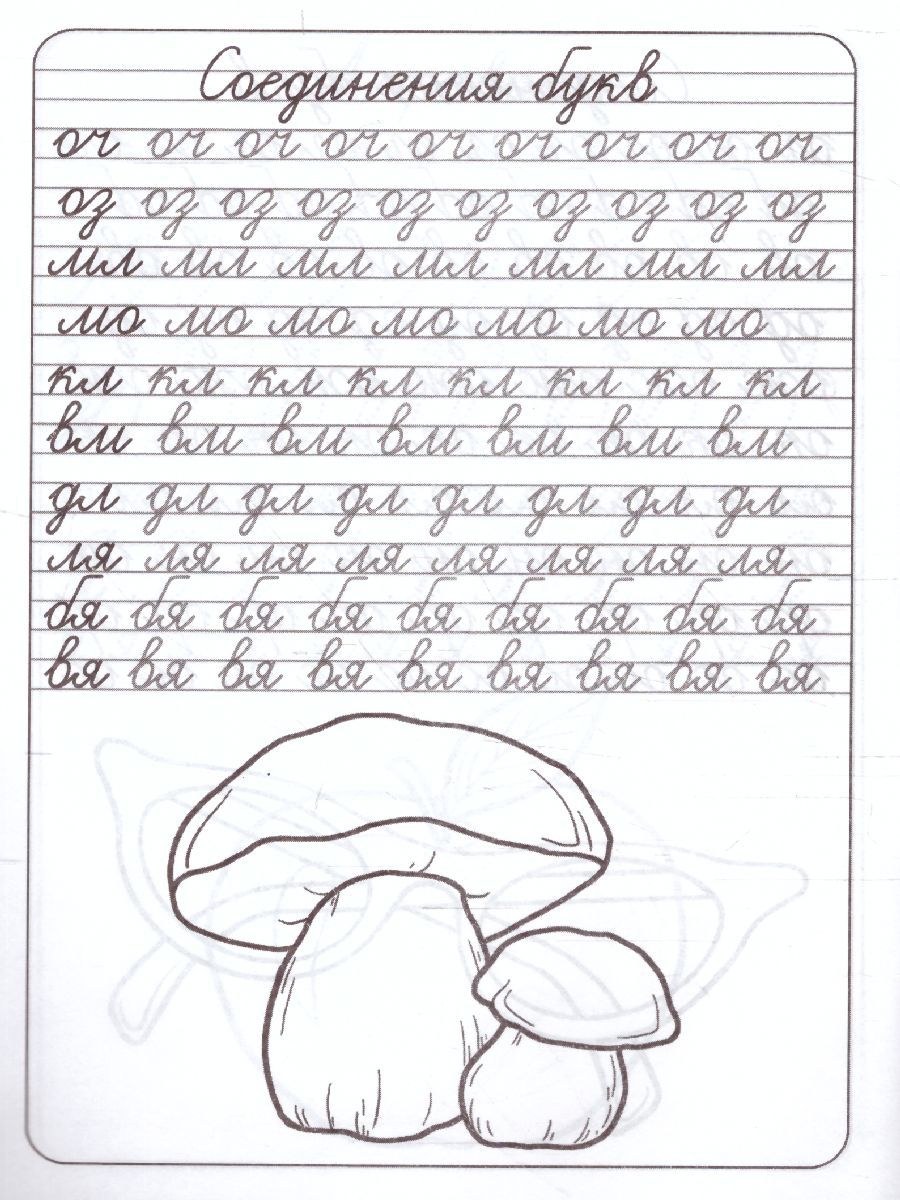 Соединения букв
оч оч оч оч оч оч оч оч оч
оз оз оз оз оз оз оз оз оз оз
мл мл мл мл мл мл мл
мо мо мо мо мо мо мо
кл кл кл кл кл кл кл кл
вм вм вм вм вм вм вм
дл дл дл дл дл дл дл дл
ля ля ля ля ля ля ля ля
бя бя бя бя бя бя бя бя бя
вя вя вя вя вя вя вя вя вя